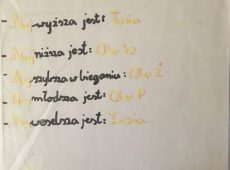 - Najwyższa jest: Zosia
- Najniższa jest: Ola Sz
- Najszybsza w bieganiu: Ola Ż
- Najmłodsza jest: Ola P
- Najweselsza jest: Zuzia